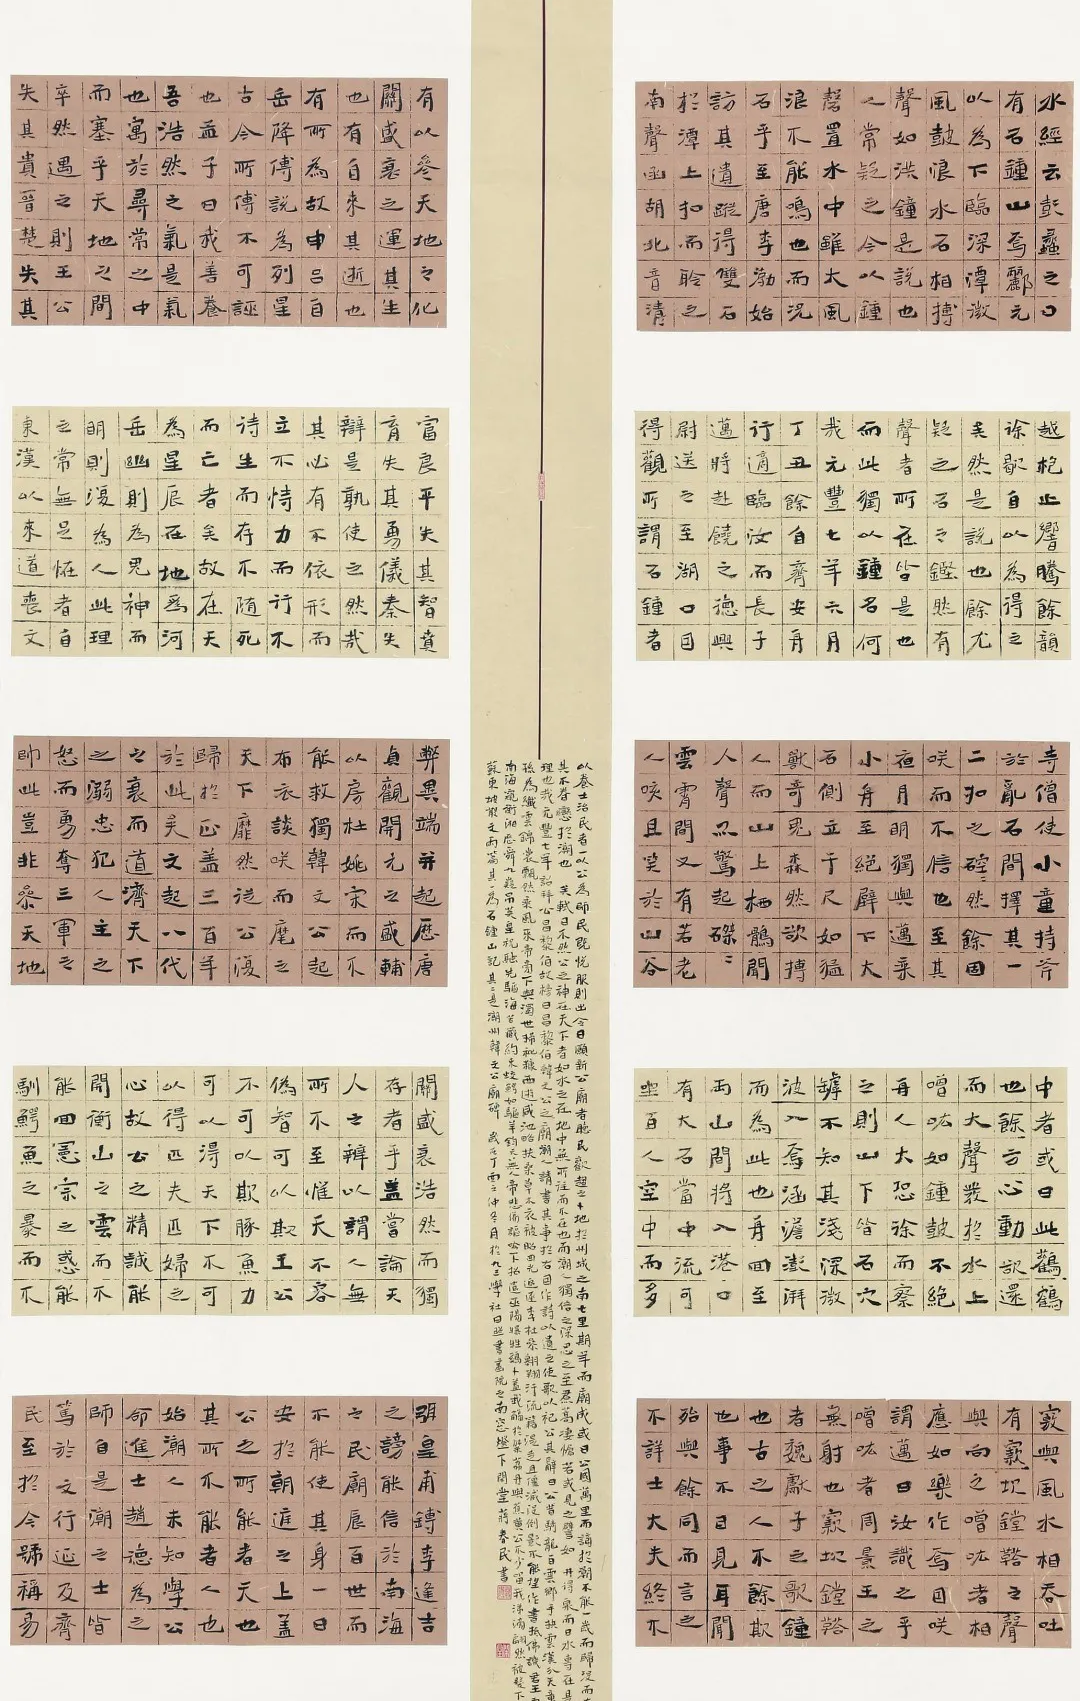 水經云彭蠡之口
有石鍾山焉酈元
以為下臨深潭微
風鼓浪水石相搏
聲如洪鐘是說也
人常疑之今以鍾
磬置水中雖大風
浪不能鳴也而況
石乎至唐李渤始
訪其遺蹤得雙石
於潭上扣而聆之
南聲函胡北音清
越枹止響騰餘韻
徐歇自以為得之
矣然是說也餘尤
疑之石之鏗然有
聲者所在皆是也
而此獨以鐘名何
哉元豐七年六月
丁丑餘自齊安舟
行適臨汝而長子
邁將赴饒之德興
尉送之至湖口因
得觀所謂石鍾者
寺僧使小童持斧
於亂石間擇其一
二扣之硿硿然餘固
咲而不信也至其
夜月明獨與邁乘
小舟至絕壁下大
石側立千尺如猛
獸奇鬼森然欲搏
人而山上栖鶻聞
人聲亦驚起磔磔
雲霄間又有若老
人咳且笑於山谷
中者或曰此鸛鶴
也餘方心動欲還
而大聲發於水上
噌吰如鐘鼓不絕
舟人大恐徐而察
之則山下皆石穴
罅不知其淺深微
波入焉涵澹澎湃
而為此也舟回至
兩山間將入港口
有大石當中流可
坐百人空中而多
竅與風水相吞吐
有窾坎鏜鞳之聲
與向之噌吰者相
應如樂作焉因咲
謂邁曰汝識之乎
噌吰者周景王之
無射也窾坎鏜鞳
者魏獻子之歌鐘
也古之人不餘欺
也事不目見耳聞
殆與餘同而言之
不詳士大夫終不
有以參天地之化
關盛衰之運其生
也有自來其逝也
有所為故申呂自
岳降傅說為列星
古今所傳不可誣
也孟子曰我善養
吾浩然之氣是氣
也寓於尋常之中
而塞乎天地之間
卒然遇之則王公
失其貴晉楚失其
富良平失其智賁
育失其勇儀秦失
辯是孰使之然哉
其必有不依形而
立不恃力而行不
待生而存不隨死
而亡者矣故在天
為星辰在地為河
岳幽則為鬼神而
明則復為人此理
之常無足怪者自
東漢以來道喪文
弊異端并起歷唐
貞觀開元之盛輔
以房杜姚宋而不
能救獨韓文公起
布衣談咲而麾之
天下靡然從公復
歸於正蓋三百年
於此矣文起八代
之衰而道濟天下
之溺忠犯人主之
怒而勇奪三軍之
帥此豈非參天地
關盛衰浩然而獨
存者乎蓋嘗論天
人之辨以謂人無
所不至惟天不容
偽智可以欺王公
不可以欺豚魚力
可以得天下不可
以得匹夫匹婦之
心故公之精誠能
開衡山之雲而不
能回憲宗之惑能
馴鱷魚之暴而不
弭皇甫鎛李逢吉
之謗能信於南海
之民廟食百世而
不能使其身一日
安於朝廷之上蓋
公之所能者天也
其所不能者人也
始潮人未知學公
命進士趙德為之
師自是潮之士皆
篤於文行延及齊
民至於今號稱易
以養士治民者一以公為師民既悅服則出令曰願新公廟者聽民歡趨之卜地於州城之南七里期年而廟成或曰公去國萬里而謫於潮不能一歲而歸沒而
其不眷戀於潮也 矣軾曰不然公之神在天下者如水之在地中無所往而不在也而潮人獨信之深思之至焄蒿悽愴若或見之譬如 井得泉而曰水專在是
理也哉元豐七年 詔拜公昌黎伯故榜曰昌黎伯韓文公之廟潮人請書其事於石因作詩以遺之使歌以祀公其辭曰公昔騎龍白雲鄉手抉雲漢分天章
孫為織雲錦裳飄然乘風來帝旁下與濁世掃秕糠西遊咸池略扶桑草木衣被昭回光追逐李杜參翱翔汗流籍湜走且僵滅沒倒影不能望作書抵佛譏君王
南海窺衡湘歷舜九疑吊英皇祝融先驅海若藏約束蛟鱷如驅羊鈞天無人帝悲傷謳吟下招遣巫陽 我觴於粲荔丹與蕉黃公不少留我涕滂翩然被髮下
蘇東坡散文兩篇其一為石鍾山記其二是潮州韓文公廟碑 歲在丁酉之仲冬月於九三學社日照書畫院之南窗燈下 蔣春民書